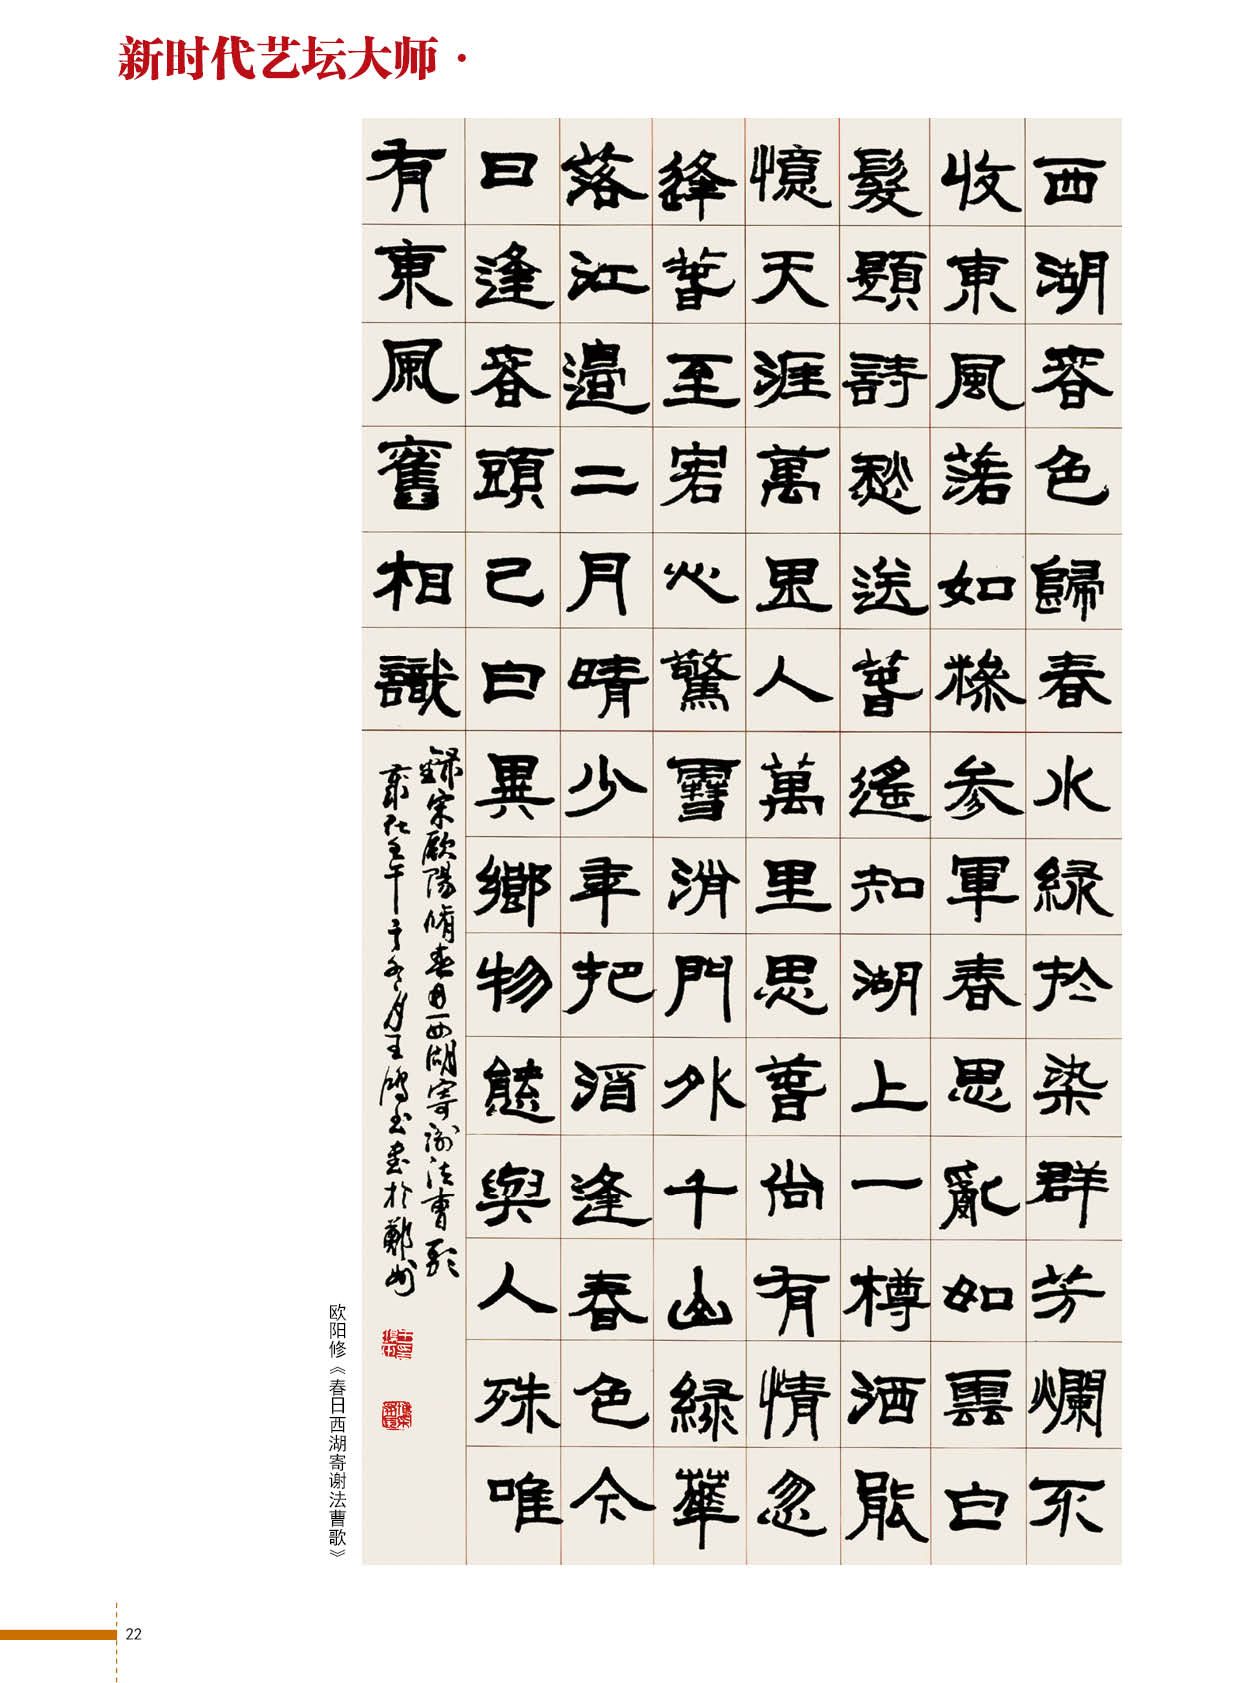 新时代艺坛大师·
西湖春色歸春水緑於染群芳爛不
收東風落如糝参軍春思亂如雲白
髮題詩愁送春遙知湖上一樽酒能
憶天涯萬里人萬里思春尚有情忽
逢春至客心驚雪消門外千山緑華
落江邊二月晴少年把酒逢春色今
日逢春頭已白異鄉物態與人殊唯
有東風舊相識
録宋歐陽脩春日西湖寄謝法曹歌
歲在壬午冬月王鴻玉書於鄭州
欧阳修《春日西湖寄谢法曹歌》
22